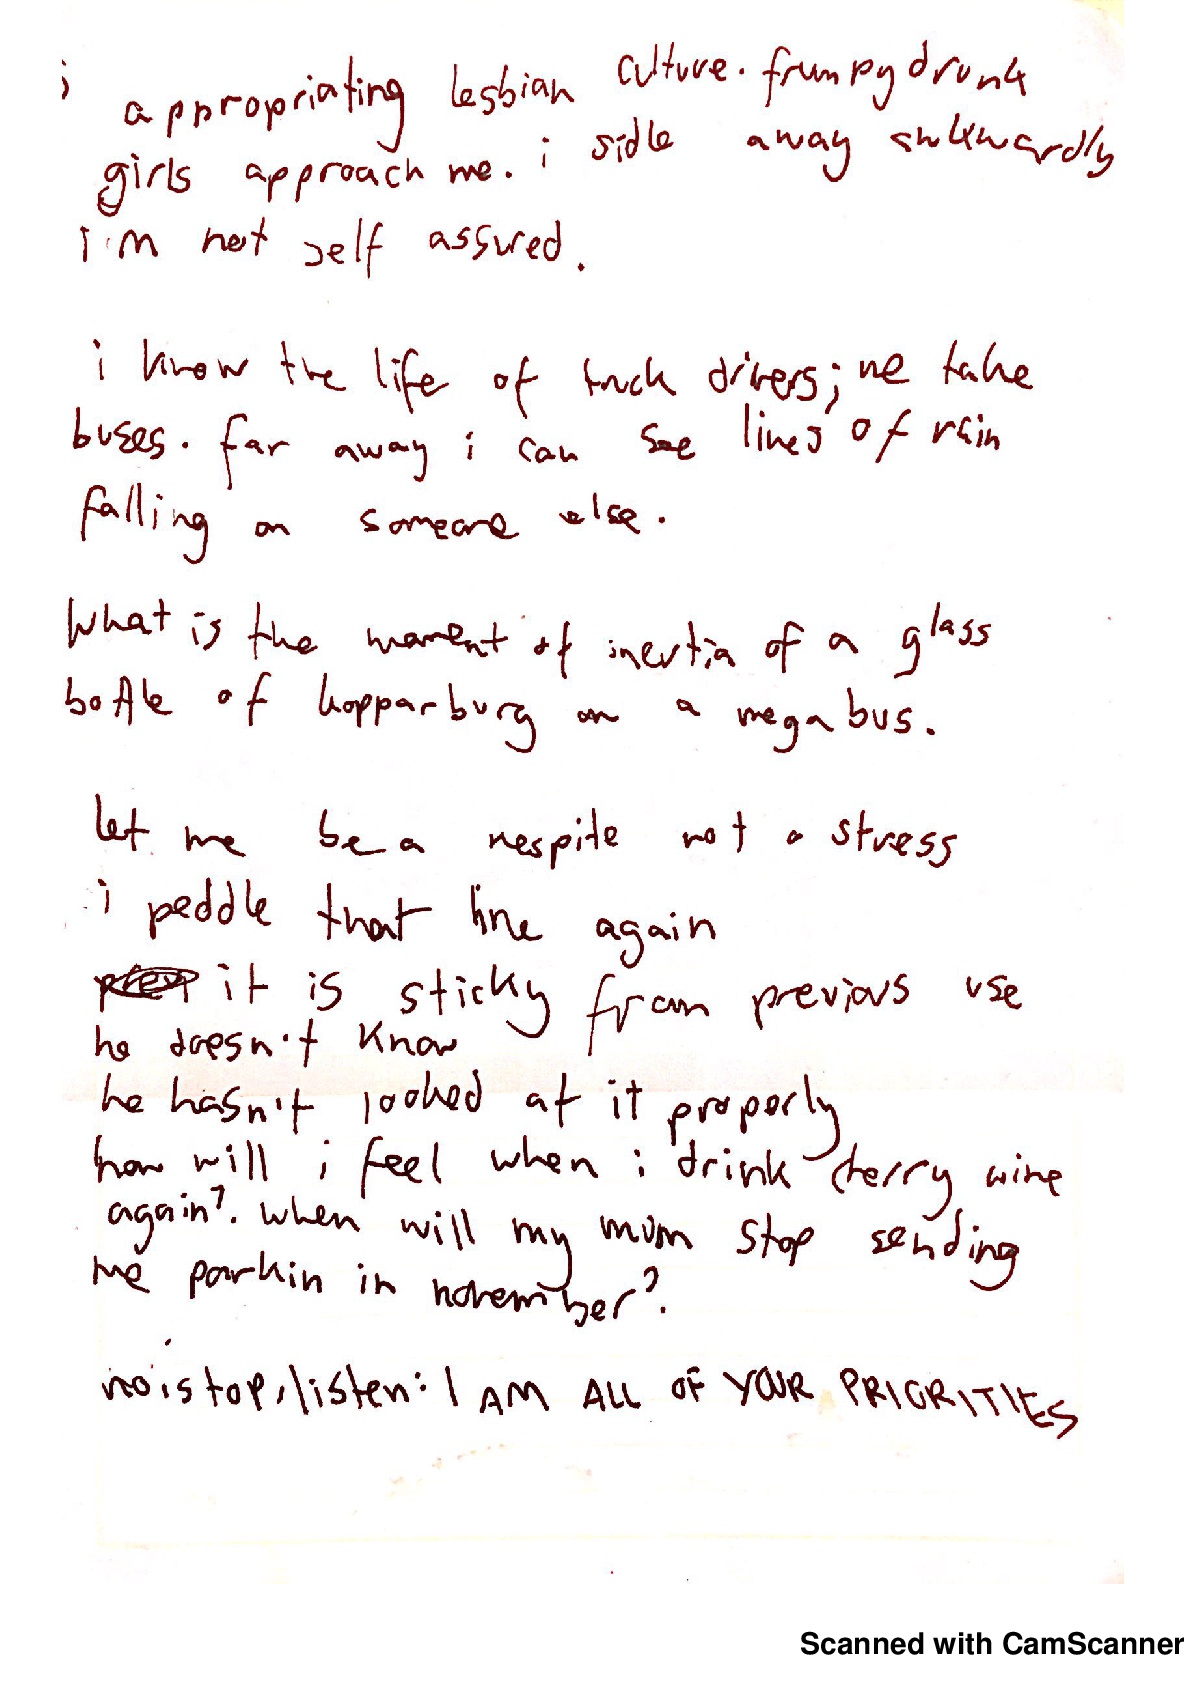 i
appropriating lesbian culture. frumpy drunk
girls approach me. i sidle away awkwardly
i'm not self assured.
i know the life of truck drivers; we take
buses. far away i can see lines of rain
falling on someone else.
What is the moment of inertia of a glass
bottle of kopparburg on a megabus.
let me be a respite not a stress
i peddle that line again
it is sticky from previous use
he doesn't know
he hasn't looked at it properly
how will i feel when i drink cherry wine
again?. when will my mum stop sending
me parkin in november?.
no, stop, listen: I AM ALL OF YOUR PRIORITIES
Scanned with CamScanner